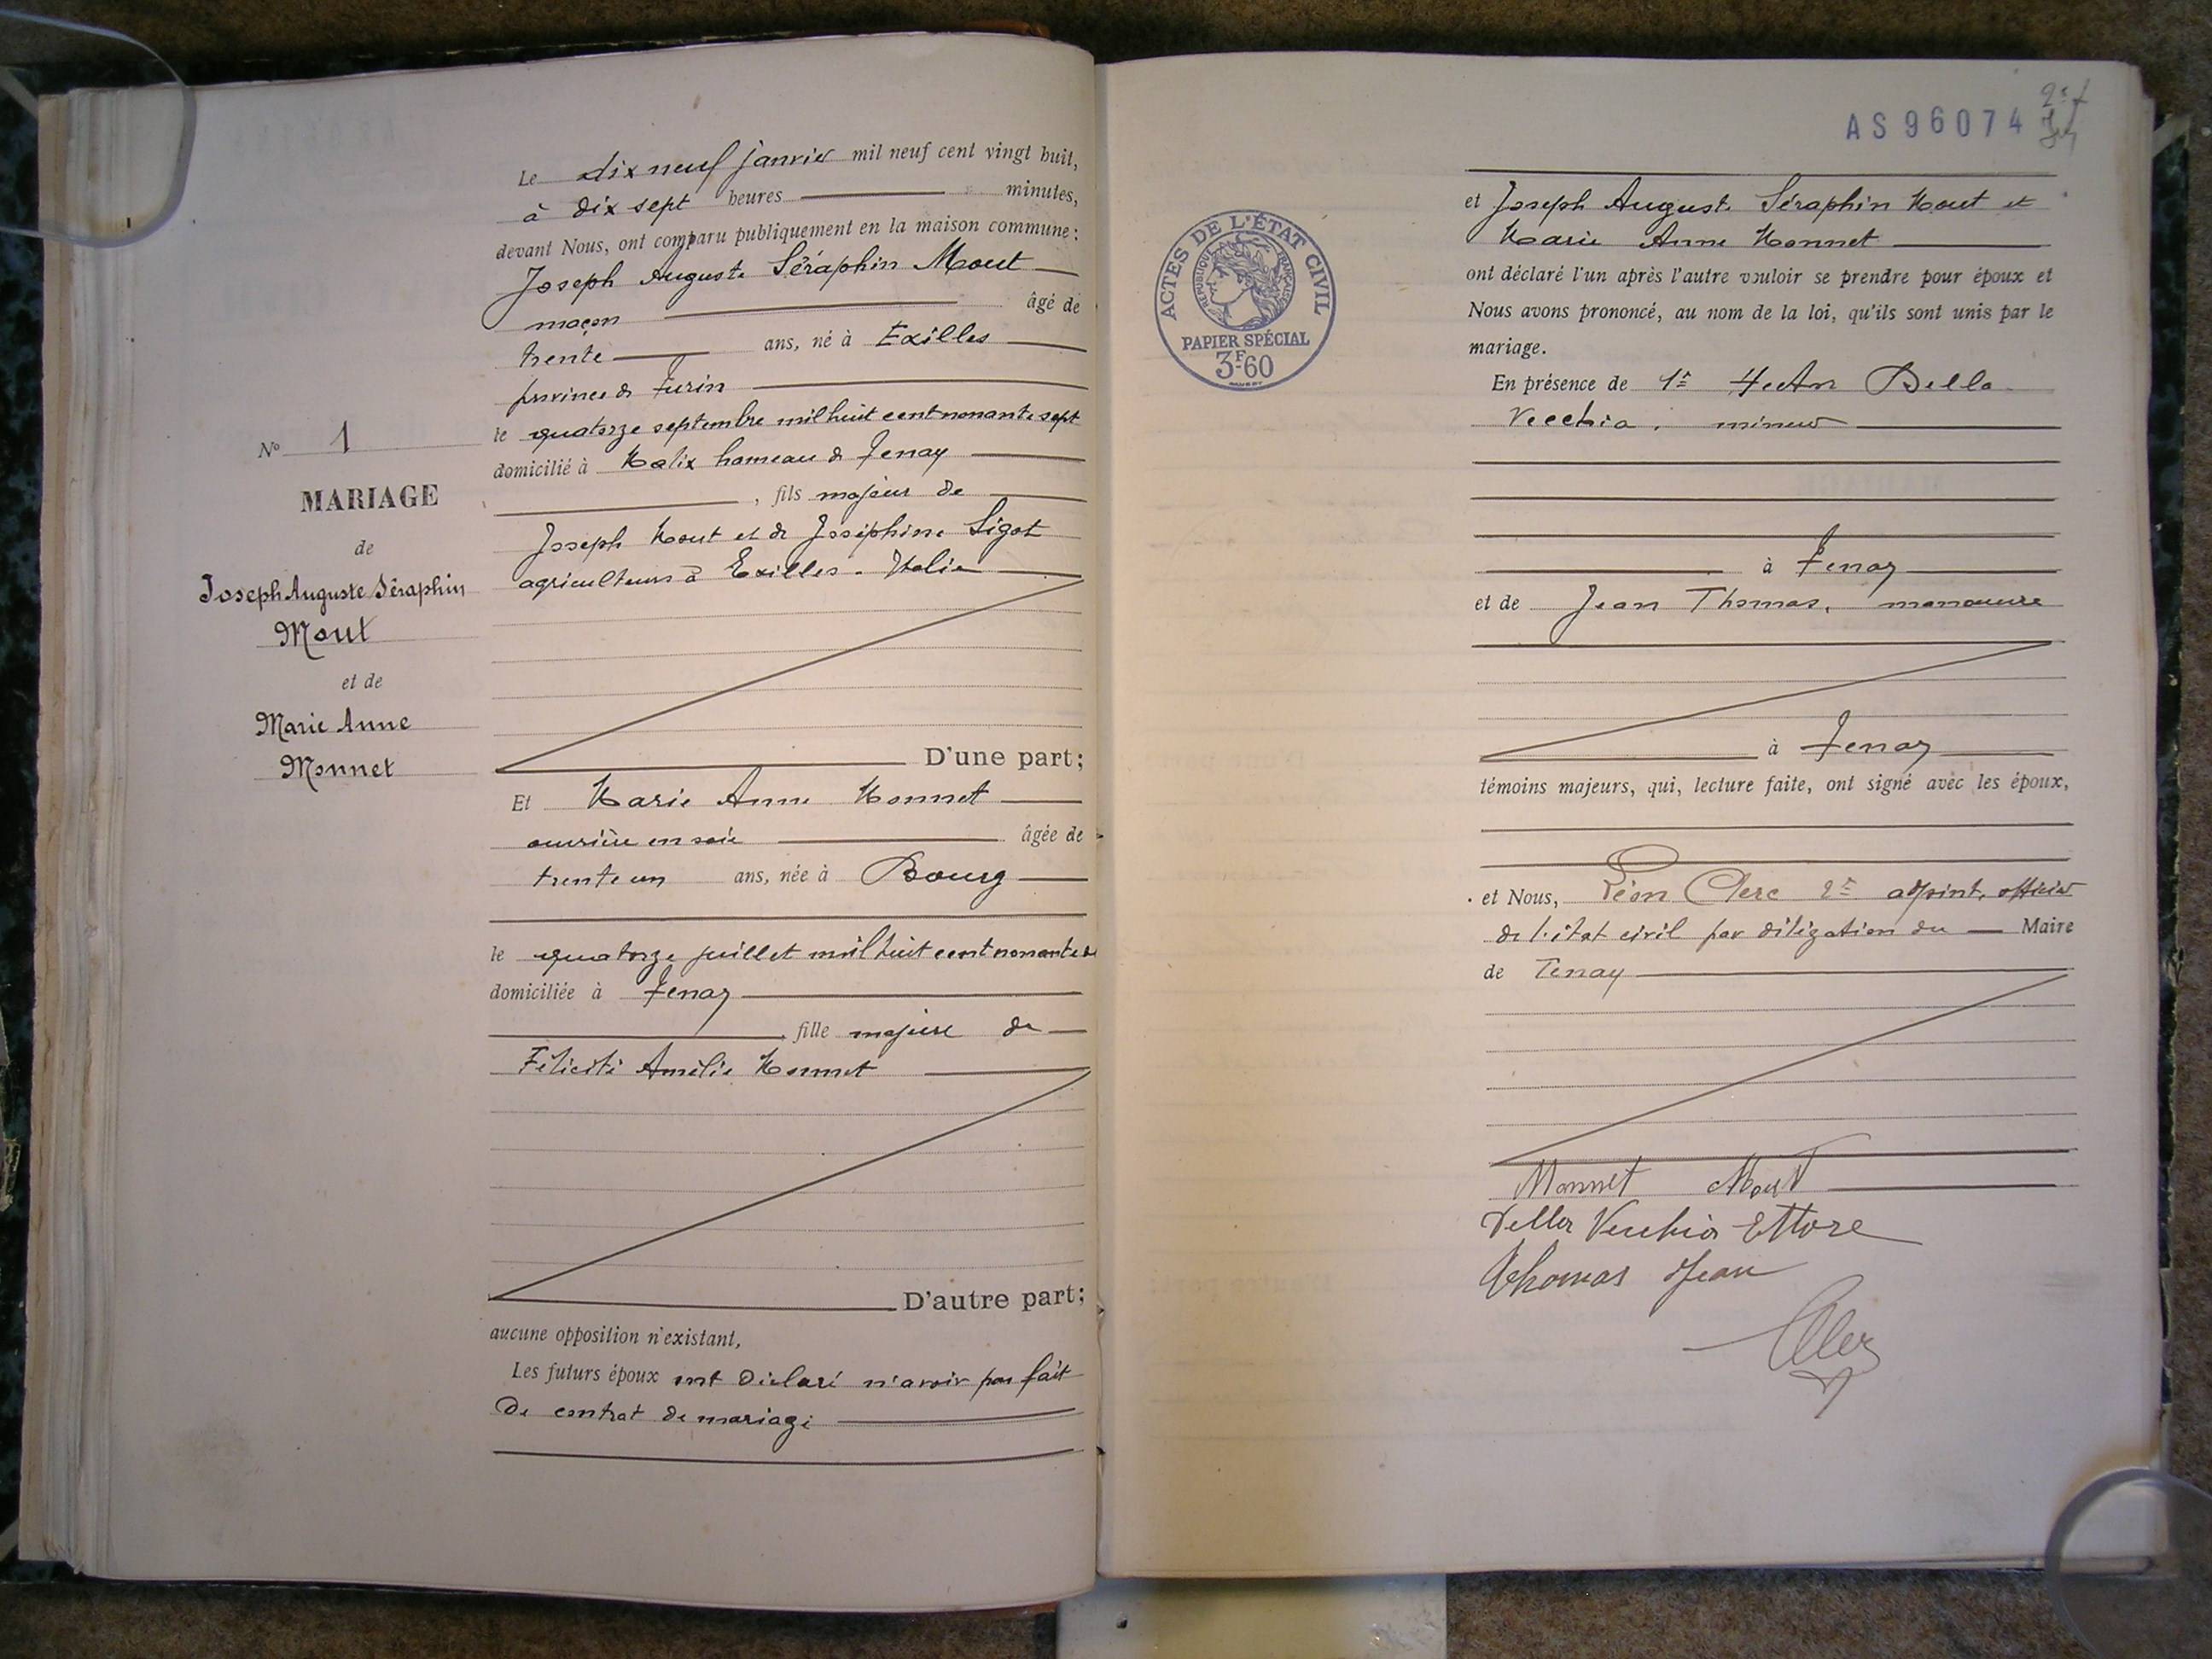 N° 1
MARIAGE
de
Joseph Auguste Séraphin
Mout
et de
Marie Anne
Monnet
Le dix neuf janvier mil neuf cent vingt huit,
à dix sept heures minutes,
devant Nous, ont comparu publiquement en la maison commune :
Joseph Auguste Séraphin Mout
maçon âgé de
trente ans, né à Exilles
province de Turin
le quatorze septembre mil huit cent nonante sept
domicilié à Malix hameau de Tenay
, fils majeur de
Joseph Mout et de Joséphine Sigot
agriculteurs à Exilles - Italie
D'une part ;
Et Marie Anne Monnet
ouvrière en soie âgée de
trente un ans, née à Bourg
le quatorze juillet mil huit cent nonante
domiciliée à Tenay
, fille majeure de
Félicité Amélie Monnet
D'autre part ;
aucune opposition n'existant,
Les futurs époux ont déclaré n'avoir pas fait
de contrat de mariage
AS96074
ACTES DE L'ÉTAT CIVIL
RÉPUBLIQUE FRANÇAISE
PAPIER SPÉCIAL
3F60
et Joseph Auguste Séraphin Mout et
Marie Anne Monnet
ont déclaré l'un après l'autre vouloir se prendre pour époux et
Nous avons prononcé, au nom de la loi, qu'ils sont unis par le
mariage.
En présence de 1° Hector Della
Vecchia, mineur
à Tenay
et de Jean Thomas, manœuvre
à Tenay
témoins majeurs, qui, lecture faite, ont signé avec les époux,
et Nous, Léon Clerc 2e adjoint, officier
de l'état civil par délégation du Maire
de Tenay
Monnet Mout
Della Vecchia Ettore
Thomas Jean
Clerc